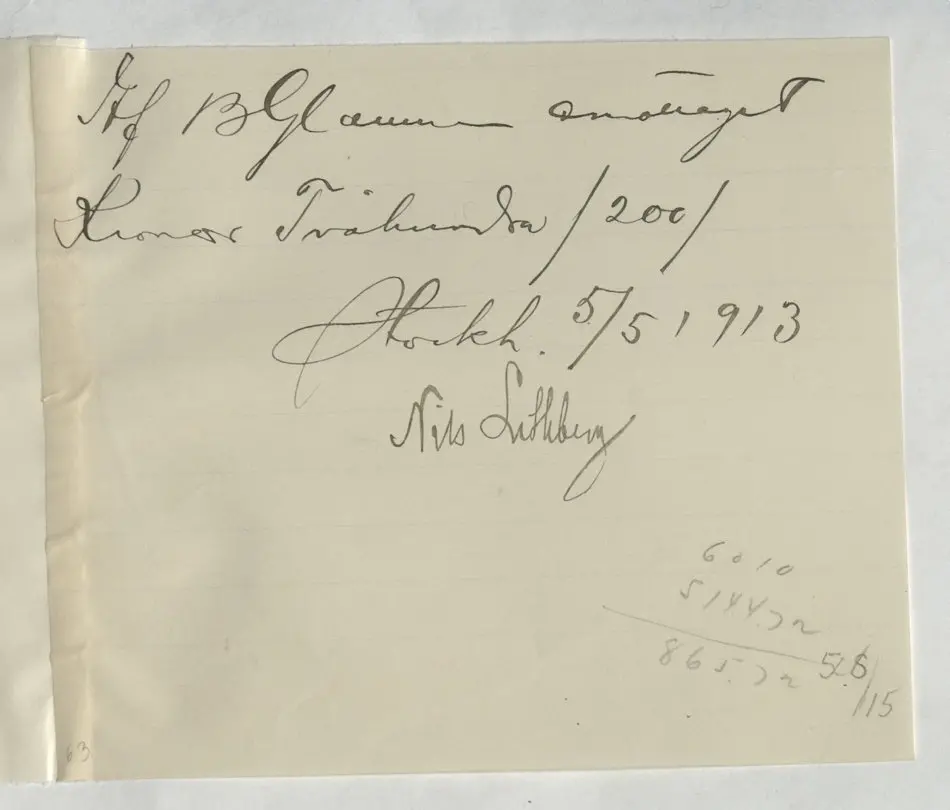 Af B Glamm emottaget
Kronor Tvåhundra /200/
Stockh. 5/5 1913
Nils Lithberg
6010
5144.72
865.72
5.8/15
63